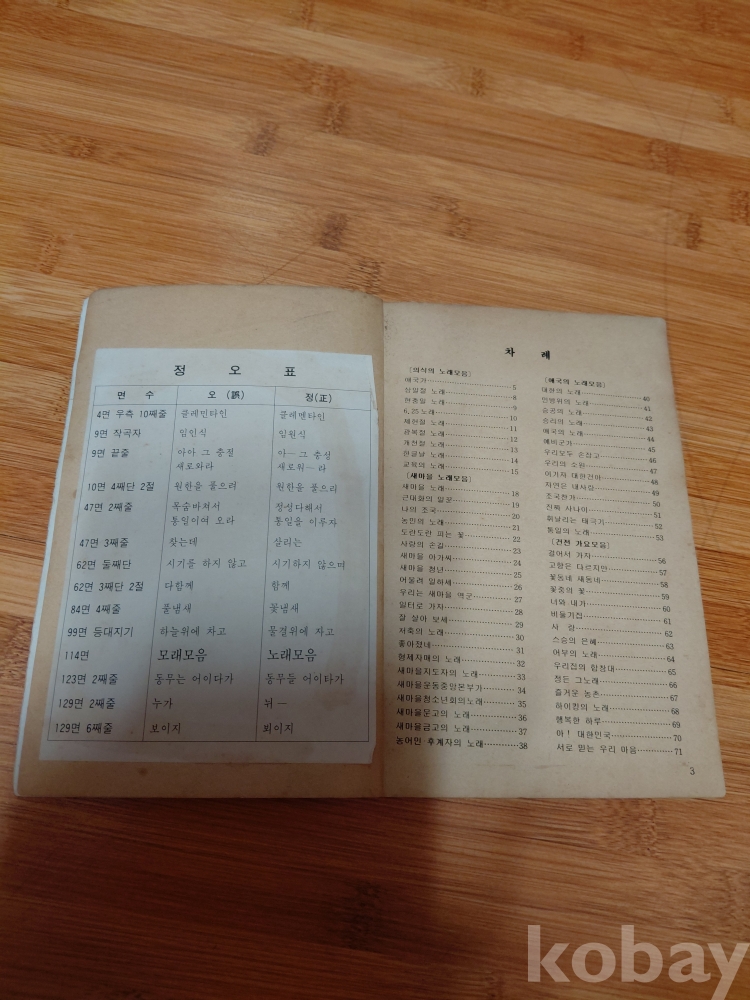 정 오 표
면 수 오 (誤) 정(正)
4면 우측 10째줄 클레민타인 클레멘타인
9면 작곡자 임인식 임원식
9면 끝줄 아아 그 충정 아— 그 충정
새로와라 새로워— 라
10면 4째단 2절 원한을 풀으려 원한을 풀으리
47면 2째줄 목숨바쳐서 정성다해서
통일이여 오라 통일을 이루자
47면 3째줄 찾는데 살리는
62면 둘째단 시기를 하지 않고 시기하지 않으며
62면 3째단 2절 다함께 함께
84면 4째줄 풀냄새 꽃냄새
99면 등대지기 하늘위에 차고 물결위에 자고
114면 모래모음 노래모음
123면 2째줄 동무는 어이다가 동무들 어이타가
129면 2째줄 누가 뉘 —
129면 6째줄 보이지 뵈이지
차 례
[의식의 노래모음]
애국가 5
삼일절 노래 8
현충일 노래 9
6.25노래 10
제헌절 노래 11
광복절 노래 12
개천절 노래 13
한글날 노래 14
교육의 노래 15
[새마을 노래모음]
새마을 노래 18
근대화의 일꾼 19
나의 조국 20
농민의 노래 21
도란도란 피는 꽃 22
사랑의 손길 23
새마을 아가씨 24
새마을 청년 25
어울려 일하세 26
우리는 새마을 역군 27
일터로 가자 28
잘 살아 보세 29
저축의 노래 30
좋아졌네 31
형제자매의 노래 32
새마을지도자의 노래 33
새마을운동중앙본부가 34
새마을청소년회의노래 35
새마을문고의 노래 36
새마을금고의 노래 37
농어민 후계자의 노래 38
[애국의 노래모음]
대한의 노래 40
민방위의 노래 41
승공의 노래 42
승리의 노래 43
애국의 노래 44
예비군가 45
우리모두 손잡고 46
우리의 소원 47
이기자 대한건아 48
자연은 내사랑 49
조국찬가 50
진짜 사나이 51
휘날리는 태극기 52
통일의 노래 53
[건전 가요모음]
걸어서 가자 56
고향은 다르지만 57
꽃동네 새동네 58
꽃중의 꽃 59
너와 내가 60
비둘기집 61
사 랑 62
스승의 은혜 63
어부의 노래 64
우리집의 합창대 65
정든 그노래 66
즐거운 농촌 67
하이킹의 노래 68
행복한 하루 69
아! 대한민국 70
서로 믿는 우리 마음 71
3
kobay